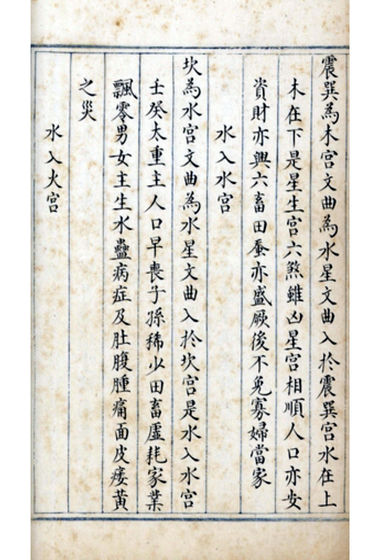 震巽為木宫文曲為水星文曲入於震巽宫水在上
木在下是星生宫六煞雖凶星宫相順人口亦安
資財亦興六畜田蚕亦盛厥後不免寡婦當家
水入水宫
坎為水宫文曲為水星文曲入於坎宫是水入水宫
壬癸太重主人口早喪子孫稀少田畜虛耗家業
飄零男女主生水蠱病症及肚腹腫痛面皮痿黃
之災
水入火宫